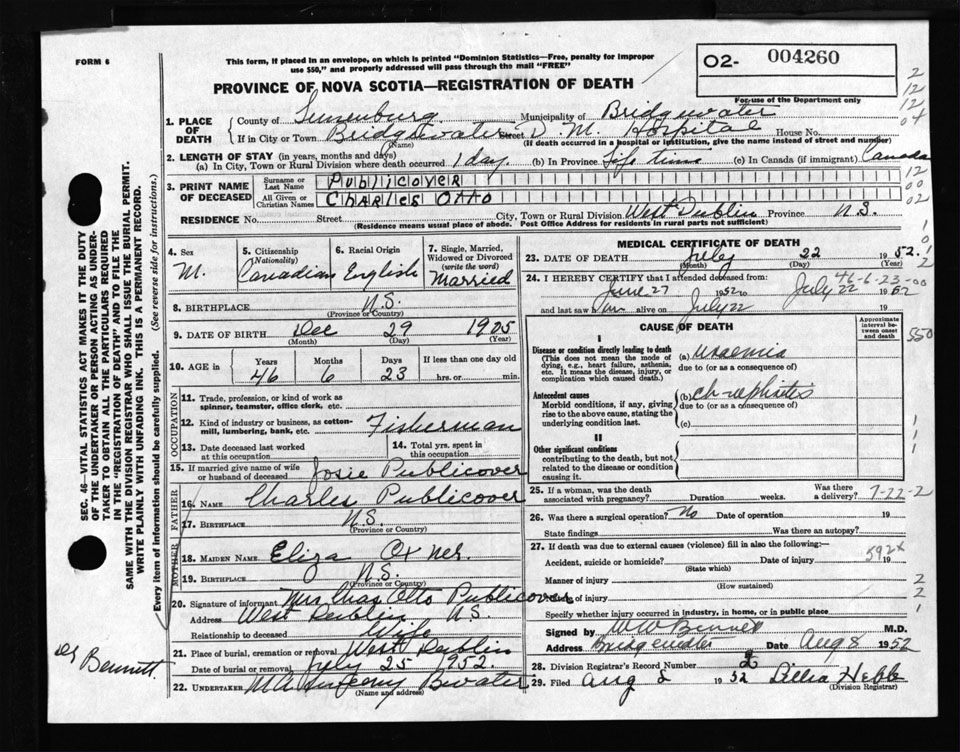 FORM 6
This form, if placed in an envelope, on which is printed "Dominion Statistics—Free, penalty for improper
use $50," and properly addressed will pass through the mail "FREE"
02- 004260
PROVINCE OF NOVA SCOTIA—REGISTRATION OF DEATH
For use of the Department only
1. PLACE OF DEATH
County of Lunenburg Municipality of Bridgewater
If in City or Town Bridgewater Street D. M. Hospital House No.
(Name) (If death occurred in a hospital or institution, give the name instead of street and number)
2. LENGTH OF STAY (in years, months and days)
(a) In City, Town or Rural Division where death occurred 1 day. (b) In Province Life time (c) In Canada (if immigrant) Canada
3. PRINT NAME OF DECEASED
Surname or Last Name PUBLICOVER
All Given or Christian Names CHARLES OTTO
RESIDENCE No. Street City, Town or Rural Division West Dublin Province N.S.
(Residence means usual place of abode. Post Office Address for residents in rural parts not sufficient)
4. Sex M.
5. Citizenship (Nationality) Canadian
6. Racial Origin English
7. Single, Married, Widowed or Divorced (write the word) Married
8. BIRTHPLACE N.S.
(Province or Country)
9. DATE OF BIRTH Dec 29 1905
(Month) (Day) (Year)
10. AGE in Years Months Days If less than one day old
46 6 23 hrs. or min.
OCCUPATION
11. Trade, profession, or kind of work as
spinner, teamster, office clerk, etc.
12. Kind of industry or business, as cotton-
mill, lumbering, bank, etc. Fisherman
13. Date deceased last worked
at this occupation
14. Total yrs. spent in
this occupation
15. If married give name of wife
or husband of deceased Josie Publicover
FATHER
16. NAME Charles Publicover
17. BIRTHPLACE N.S.
(Province or Country)
MOTHER
18. MAIDEN NAME Eliza Oxner.
19. BIRTHPLACE N.S.
(Province or Country)
20. Signature of informant Mrs Chas Otto Publicover
Address West Dublin N.S.
Relationship to deceased Wife
21. Place of burial, cremation or removal West Dublin
Date of burial or removal July 25 1952.
22. UNDERTAKER B'water
(Name and address)
MEDICAL CERTIFICATE OF DEATH
23. DATE OF DEATH July 22 1952.
(Month) (Day) (Year)
24. I HEREBY CERTIFY that I attended deceased from:
46-6-23-00
June 27 1952 to July 22 1952
and last saw him alive on July 22
CAUSE OF DEATH
Approximate interval between onset and death
I
Disease or condition directly leading to death
(This does not mean the mode of
dying, e.g., heart failure, asthenia,
etc. It means the disease, injury, or
complication which caused death.)
(a) uraemia
due to (or as a consequence of)
Antecedent causes
Morbid conditions, if any, giving
rise to the above cause, stating the
underlying condition last.
(b) ch nephritis
due to (or as a consequence of)
(c)
II
Other significant conditions
contributing to the death, but not
related to the disease or condition
causing it.
25. If a woman, was the death
associated with pregnancy? Duration weeks. Was there a delivery? 7-22-2
26. Was there a surgical operation? No Date of operation 19
State findings Was there an autopsy?
27. If death was due to external causes (violence) fill in also the following:—
592x
Accident, suicide or homicide? Date of injury 19
(State which)
Manner of injury
(How sustained)
of injury
Specify whether injury occurred in industry, in home, or in public place
Signed by W W Bennett M.D.
Address Bridgewater Date Aug 8 1952
28. Division Registrar's Record Number
29. Filed Aug 8 1952 Hebb
(Division Registrar)
SEC. 46—VITAL STATISTICS ACT MAKES IT THE DUTY
OF THE UNDERTAKER OR PERSON ACTING AS UNDER-
TAKER TO OBTAIN ALL THE PARTICULARS REQUIRED
IN THE "REGISTRATION OF DEATH" AND TO FILE THE
SAME WITH THE DIVISION REGISTRAR WHO SHALL ISSUE THE BURIAL PERMIT.
WRITE PLAINLY WITH UNFADING INK. THIS IS A PERMANENT RECORD.
Every item of information should be carefully supplied. (See reverse side for instructions.)
Dr Bennett.
2
12
12
04
12
00
02
1
0
1
2
550
1
1
1
2
2
1